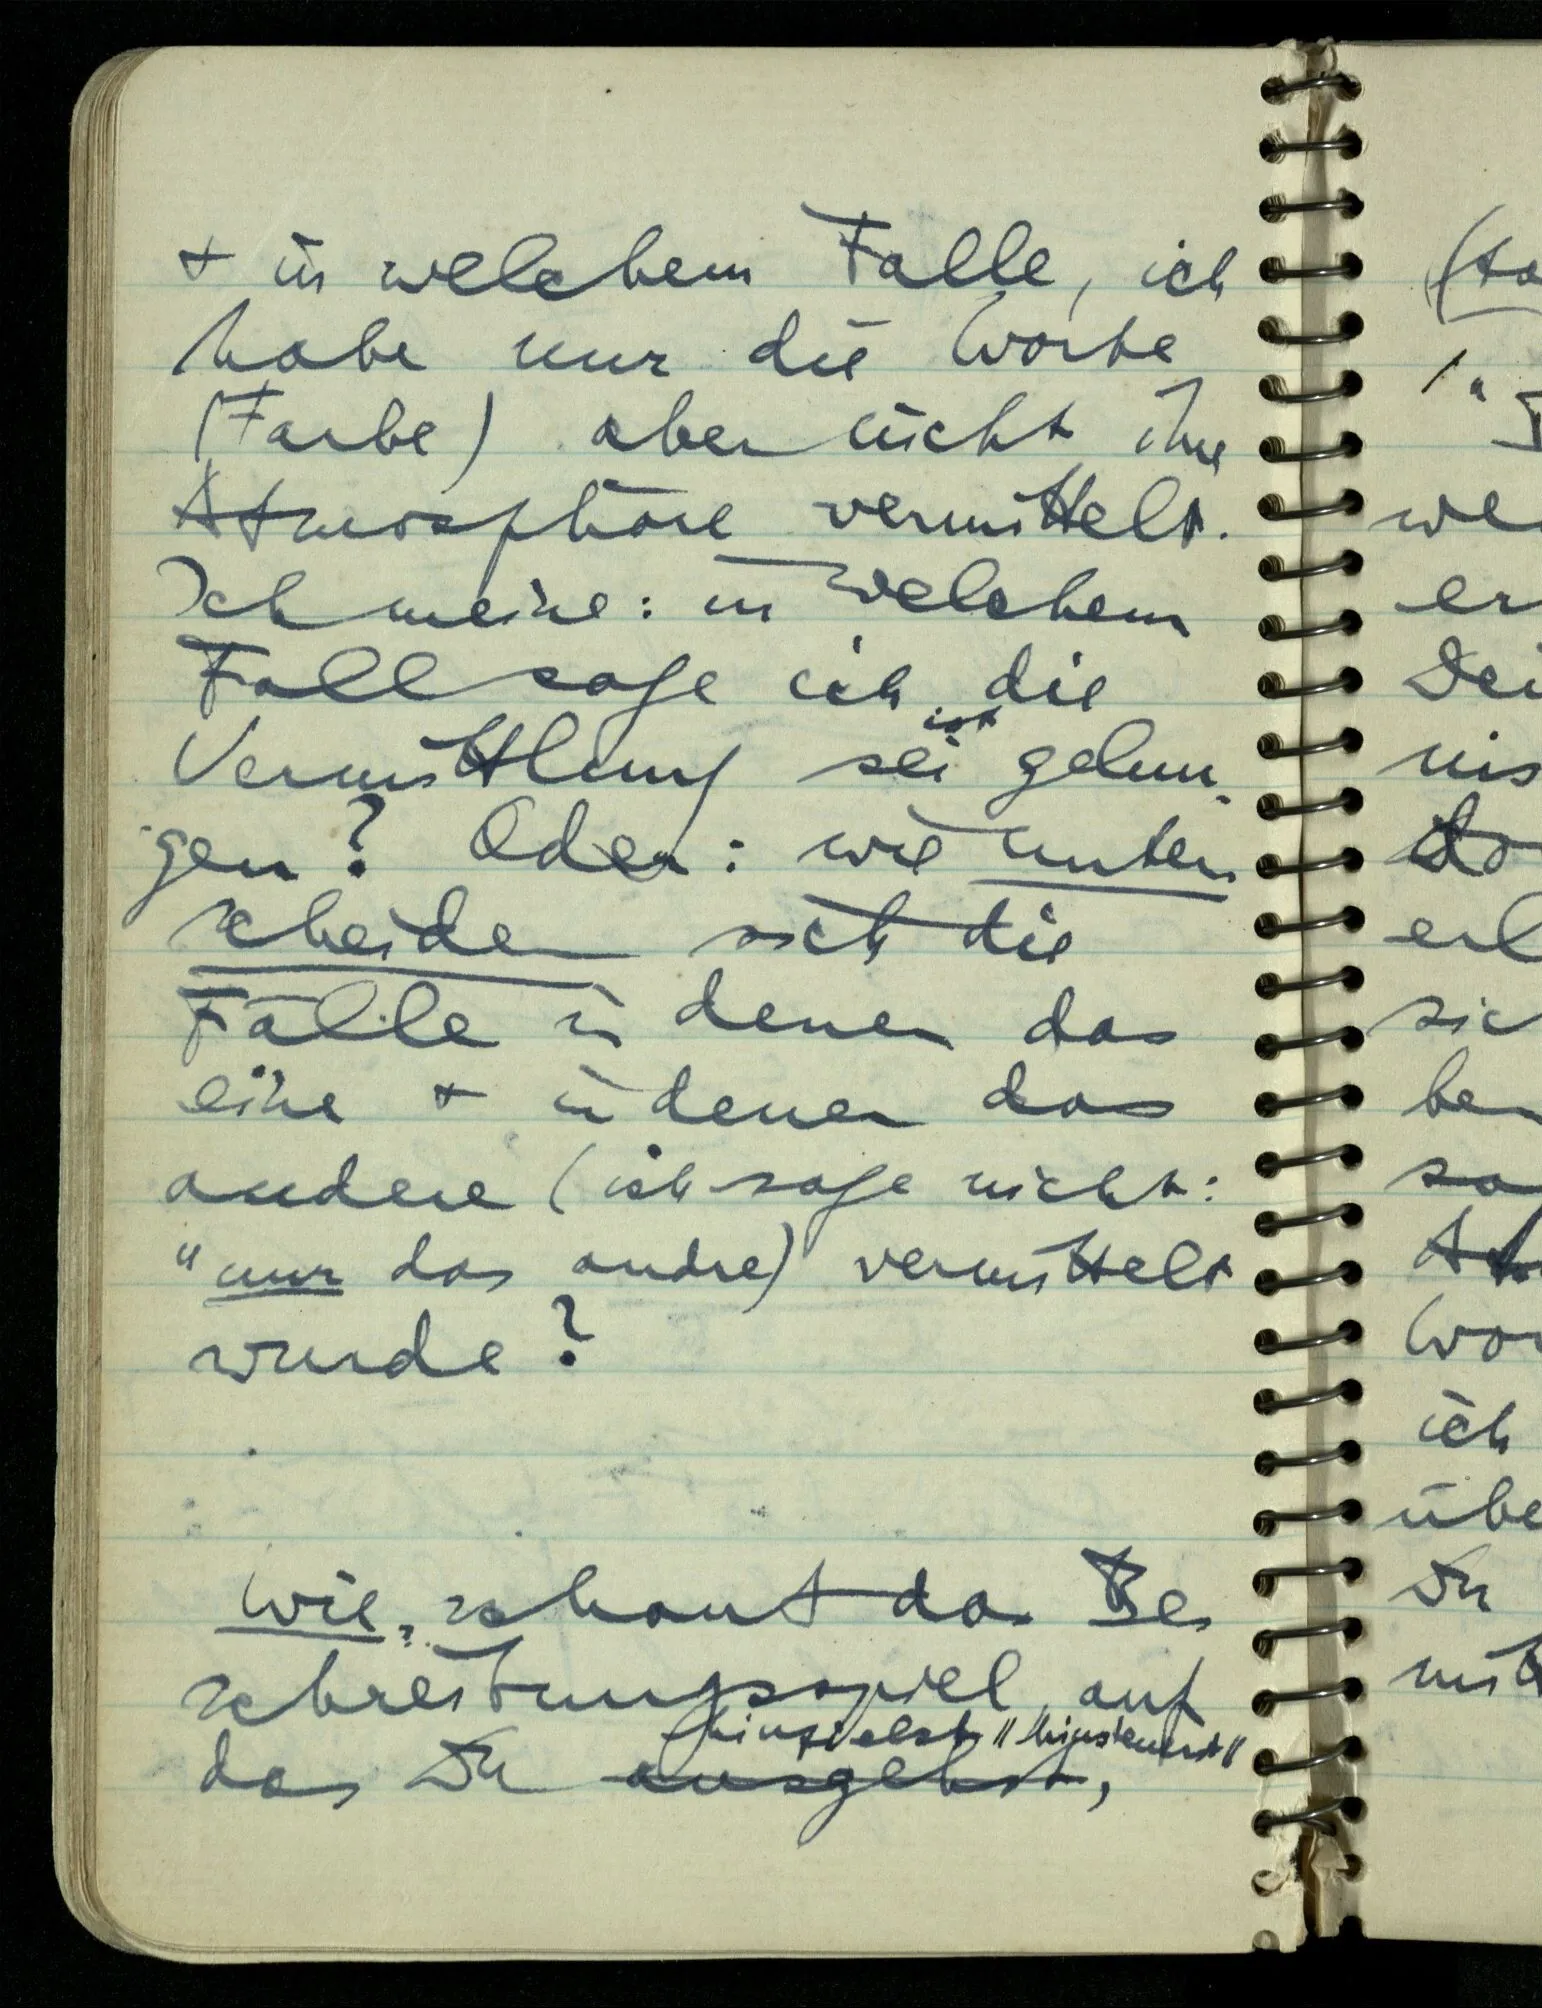 + in welchem Falle, ich
habe nur die Worte
(Farbe) aber nicht ihre
Atmosphäre vermittelt.
Ich meine: in welchem
Fall sage ich die
ist
Vermittlung sei gelun-
gen? Oder: wie unter-
scheiden sich die
Fälle in denen das
eine + in denen das
andere (ich sage nicht:
"nur das andre) vermittelt
wurde?
Wie, schaut das Be-
schreibungsspiel, auf
hinzielst "hinsteuerst"
das Du ausgehst,
(
"
we
er
Dei
nis
do
erl
sic
be
sa
Wor
ich
übe
Du
mit